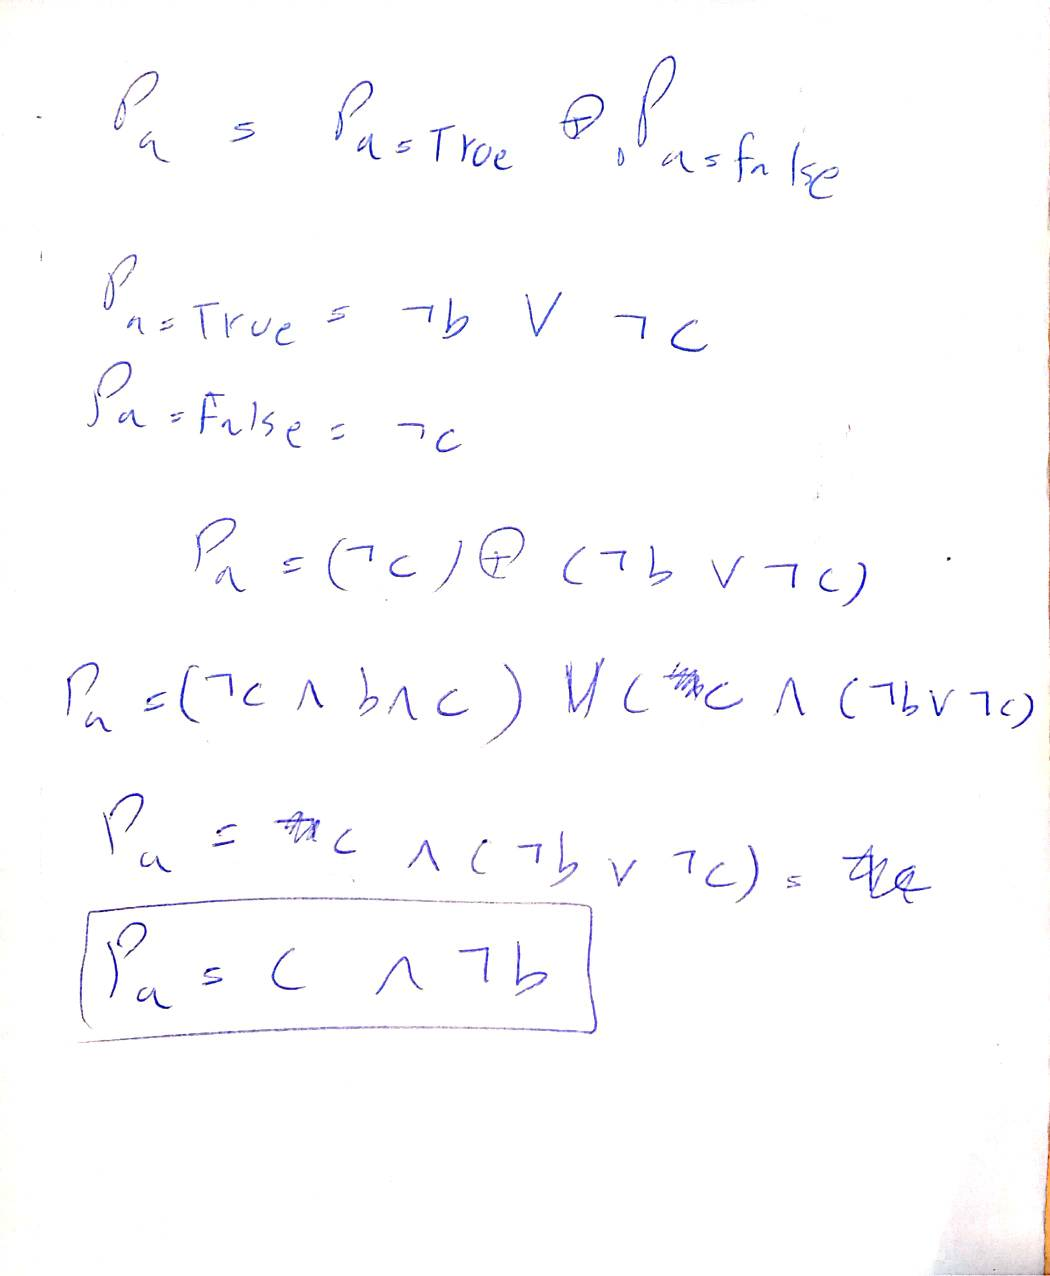 Pa = Pa=True ⊕ Pa=false
Pa=True = ¬b ∨ ¬c
Pa=False = ¬c
Pa = (¬c) ⊕ (¬b ∨ ¬c)
Pa = (¬c ∧ b ∧ c) ∨ ( c ∧ (¬b ∨ ¬c)
Pa = c ∧ (¬b ∨ ¬c) =
Pa = c ∧ ¬b